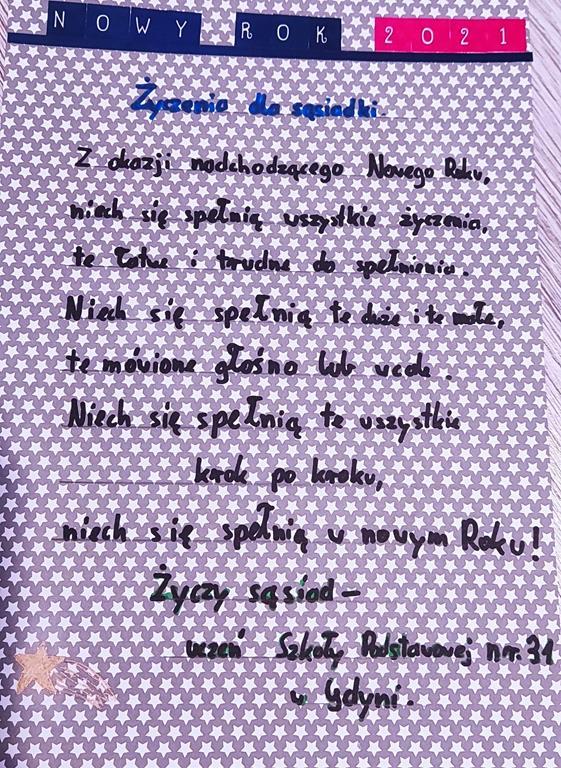 NOWY ROK 2021
Życzenia dla sąsiadki.
Z okazji nadchodzącego Nowego Roku,
niech się spełnią wszystkie życzenia,
te łatwe i trudne do spełnienia.
Niech się spełnią te duże i te małe,
te mówione głośno lub wcale.
Niech się spełnią te wszystkie
krok po kroku,
niech się spełnią w nowym Roku!
Życzy sąsiad -
uczeń Szkoły Podstawowej nr. 31
w Gdyni.